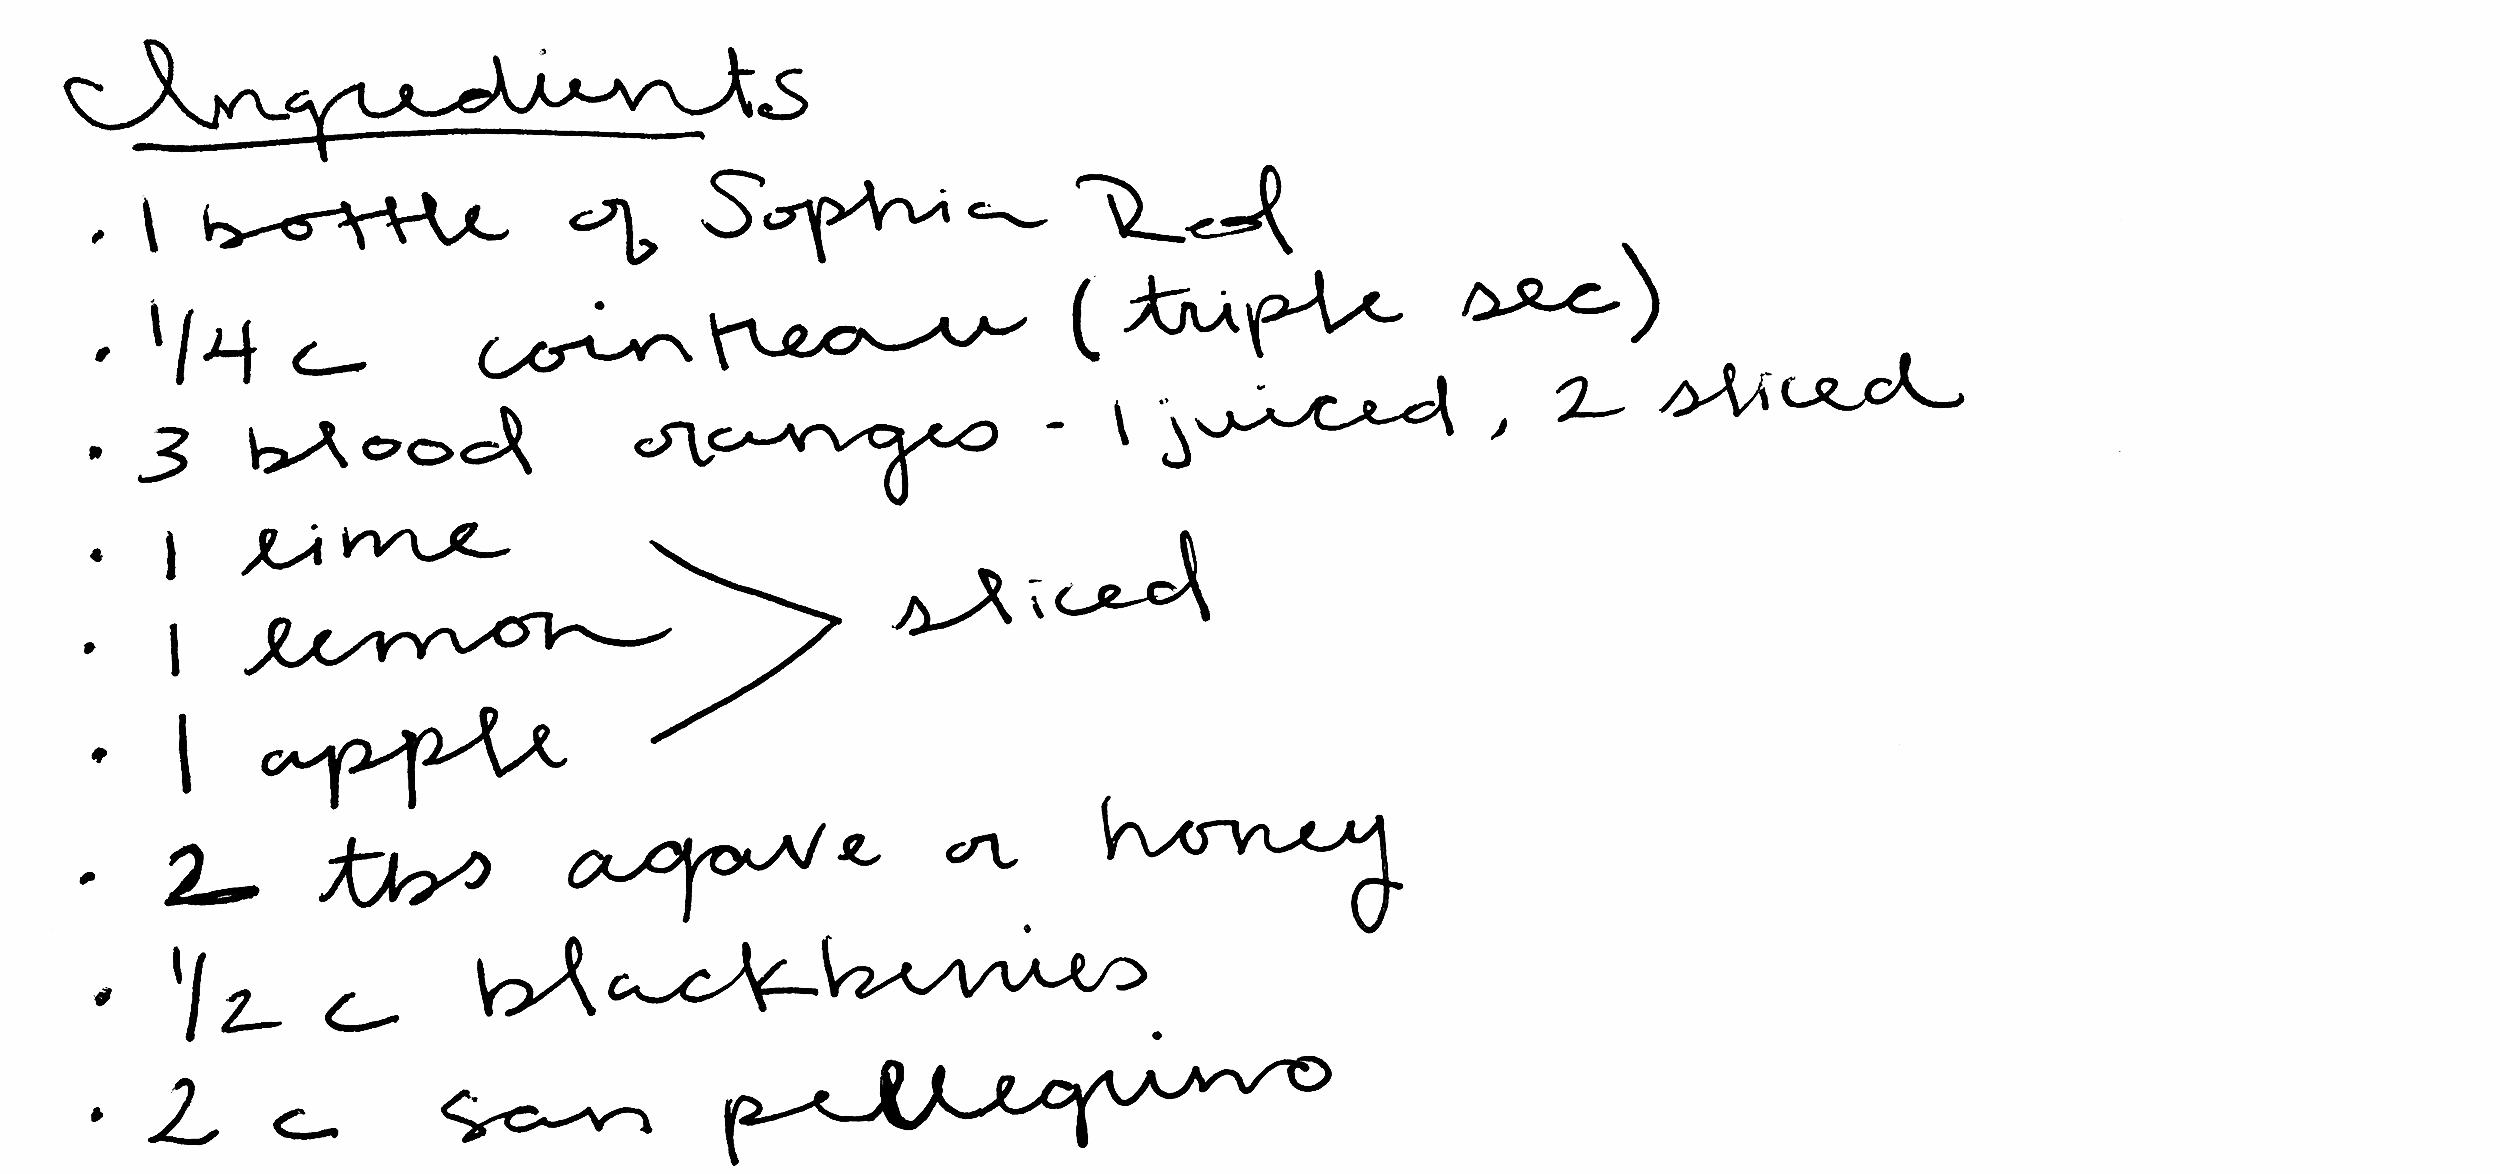 Ingredients
· 1 bottle of Sophia Red
· 1/4 c cointreau (triple sec)
· 3 blood oranges - 1 juiced, 2 sliced
· 1 lime
· 1 lemon > sliced
· 1 apple
· 2 tbs agave or honey
· 1/2 c blackberries
· 2 c san pellegrino